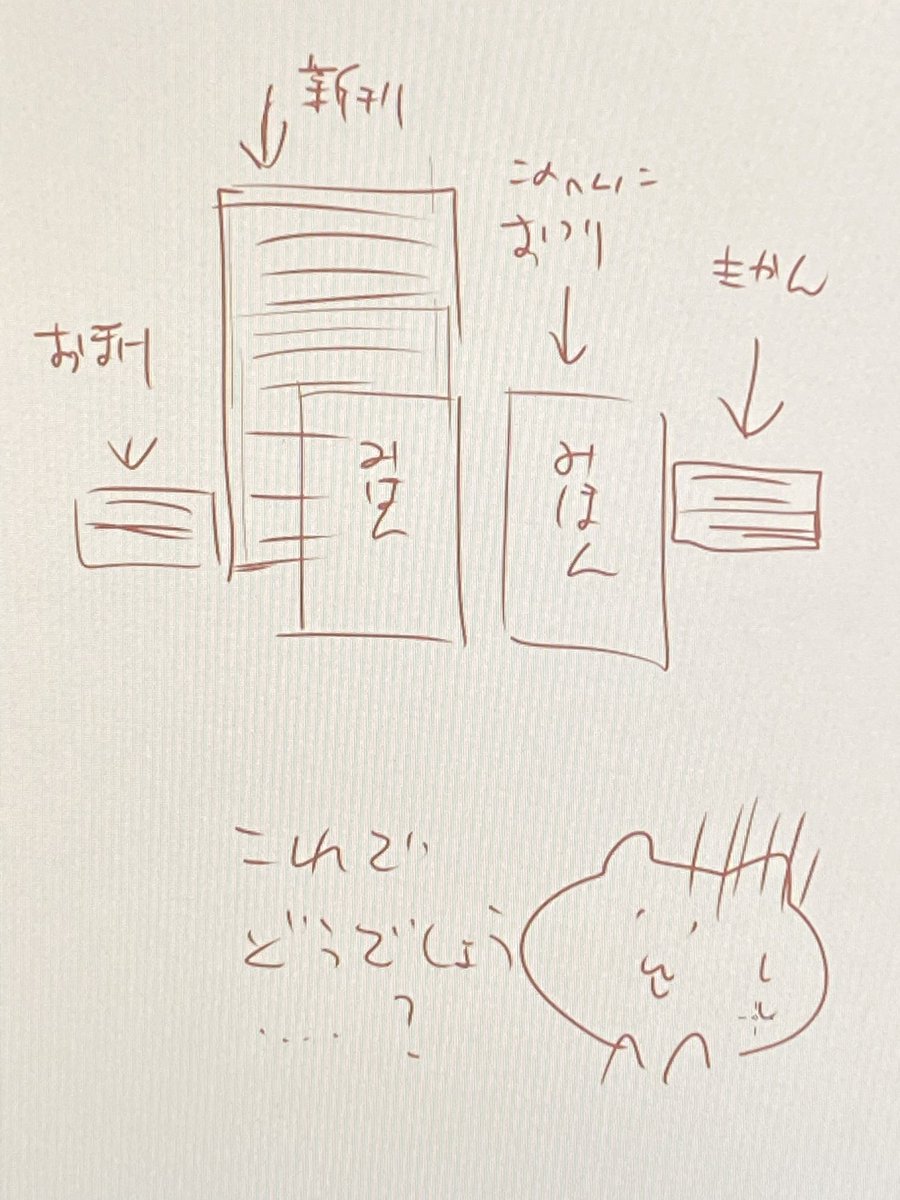 新刊
このへんに
おつり
きかん
おまけ
みほん
みほん
これで
どうでしょう
.... ?